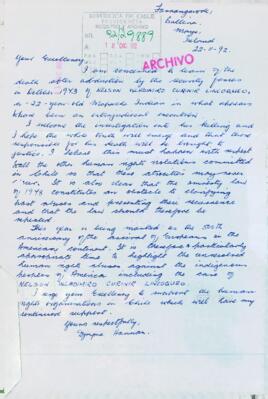 Farnangarode,
Ballina,
Mayo,
Ireland
22-11-92.
REPUBLICA DE CHILE
PRESIDENCIA
REGISTRO Y ARCHIVO
NR. 92/29889
A 18 DIC 92
ARCHIVO
Your Excellency,
I am concerned to learn of the
death after abduction by the security forces
in October 1973 of NELSON VLADIMIRO CURIÑIR LINCOQUEO,
a 22-year old Mapuche Indian in what appears
have been an extrajudicial execution.
I welcome the investigation into his killing and
I hope the whole truth will emerge and that those
responsible for his death will be brought to
justice. I believe this must happen with respect
to all the other human rights violations committed
in Chile so that these atrocities may never
recur. It is also clear that the amnesty law
of 1978 constitutes an obstacle to clarifying
past abuses and preventing their recurrence
and that the law should therefore be
repealed
This year is being marked as the 500th
anniversary of the arrival of Europeans in the
American continent. It is therefore a particularly
appropriate time to highlight the unresolved
human right abuses against the indigenous
peoples of America including the case of
NELSON VLADIMIRO CURIÑIR LINCOQUEO.
I urge your Excellency to support the human
rights organisations in Chile which will have my
continued support.
Yours respectfully,
Dympna Hannan.